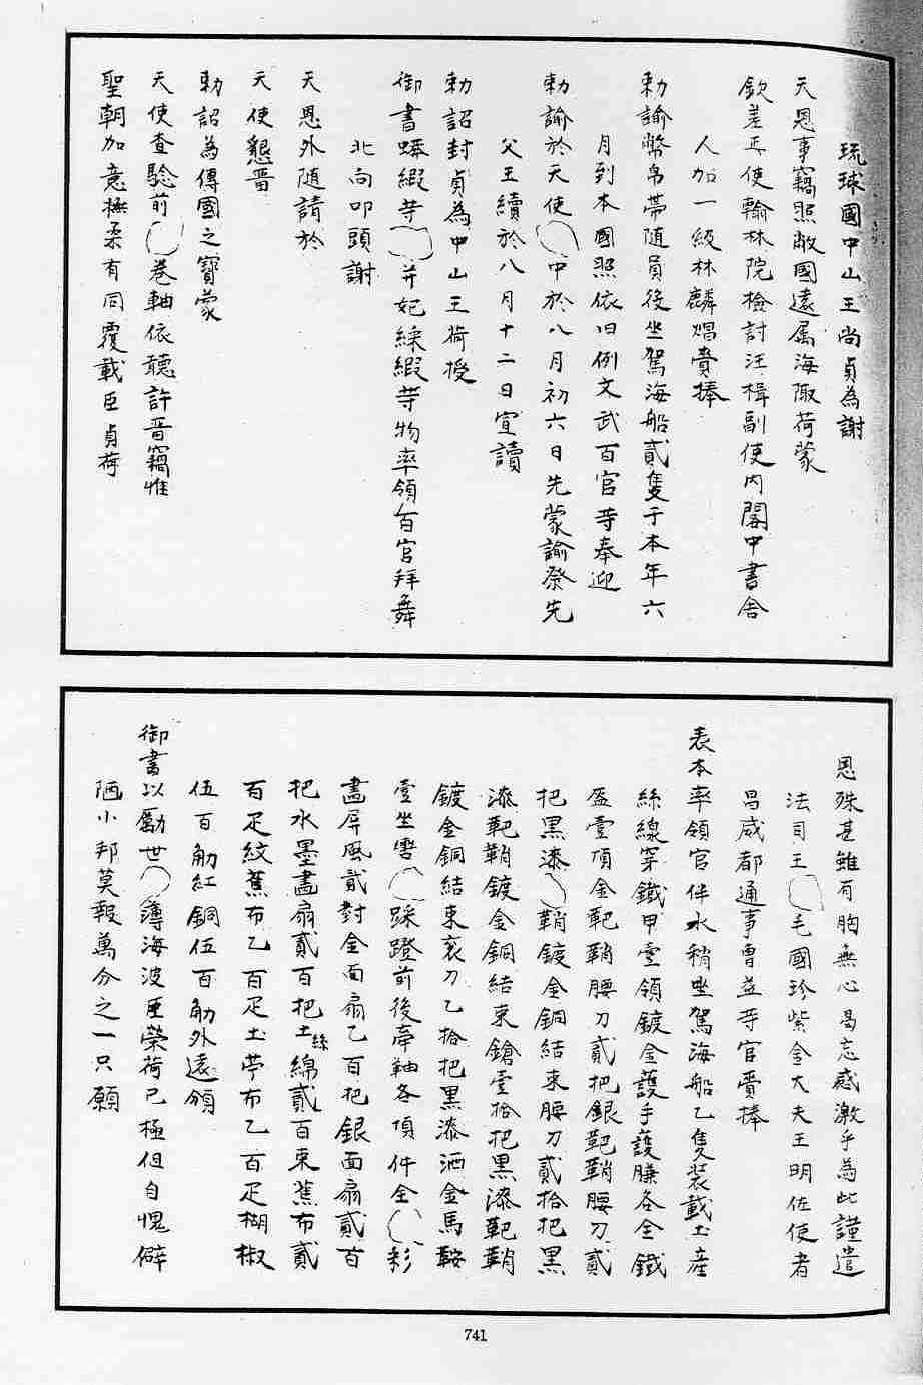 琉球國中山王尚貞為謝
天恩事竊照敝國遠属海陬荷蒙
欽差正使翰林院檢討汪楫副使內閣中書舍
人加一級林麟焻賫捧
勅諭幣帛帶随員役坐駕海船貳隻于本年六
月到本國照依旧例文武百官等奉迎
勅諭於天使中於八月初六日先蒙諭祭先
父王續於八月十二日宣讀
勅詔封貞為中山王荷授
御書蟒緞等并妃綵緞等物率領百官拜舞
北向叩頭謝
天恩外随請於
天使懇畱
勅詔為傳國之寶蒙
天使查驗前卷軸依聽許畱竊惟
聖朝加意撫柔有同覆載臣貞荷
恩殊甚雖有胸無心曷忘感激乎為此謹遣
法司王毛國珍紫金大夫王明佐使者
昌威都通事曾益等官賫捧
表本率領官伴水稍坐駕海船乙隻装載土産
絲線穿鐵甲壹領鍍金護手護臁各全鐵
盔壹頂金靶鞘腰刀貳把銀靶鞘腰刀貳
把黒漆鞘鍍金銅結束腰刀貳拾把黒
漆靶鞘鍍金銅結束鎗壹拾把黒漆靶鞘
鍍金銅結束衮刀乙拾把黒漆洒金馬鞍
壹坐轡踩蹬前後牽軸各項件全彩
畵屏風貳對金面扇乙百把銀面扇貳百
把水墨畵扇貳百把土絲綿貳百束蕉布貳
百疋紋蕉布乙百疋土苧布乙百疋胡椒
伍百觔紅銅伍百觔外遠頒
御書以勵世薄海波臣榮荷已極但自愧僻
陋小邦莫報萬分之一只願
741